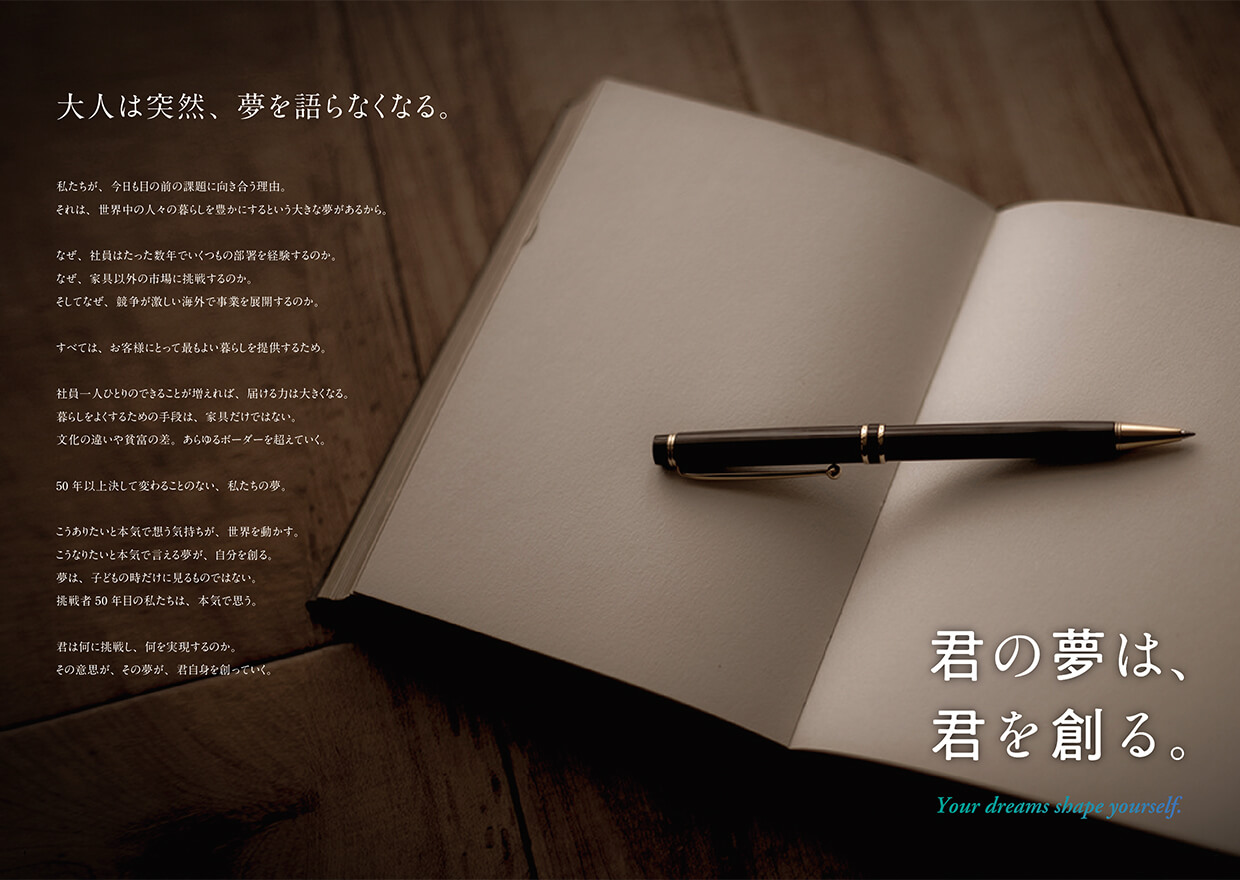 大人は突然、夢を語らなくなる。
私たちが、今日も目の前の課題に向き合う理由。
それは、世界中の人々の暮らしを豊かにするという大きな夢があるから。
なぜ、社員はたった数年でいくつもの部署を経験するのか。
なぜ、家具以外の市場に挑戦するのか。
そしてなぜ、競争が激しい海外で事業を展開するのか。
すべては、お客様にとって最もよい暮らしを提供するため。
社員一人ひとりのできることが増えれば、届ける力は大きくなる。
暮らしをよくするための手段は、家具だけではない。
文化の違いや貧富の差。あらゆるボーダーを超えていく。
50年以上決して変わることのない、私たちの夢。
こうありたいと本気で想う気持ちが、世界を動かす。
こうなりたいと本気で言える夢が、自分を創る。
夢は、子どもの時だけに見るものではない。
挑戦者50年目の私たちは、本気で思う。
君は何に挑戦し、何を実現するのか。
その意思が、その夢が、君自身を創っていく。
君の夢は、
君を創る。
Your dreams shape yourself.